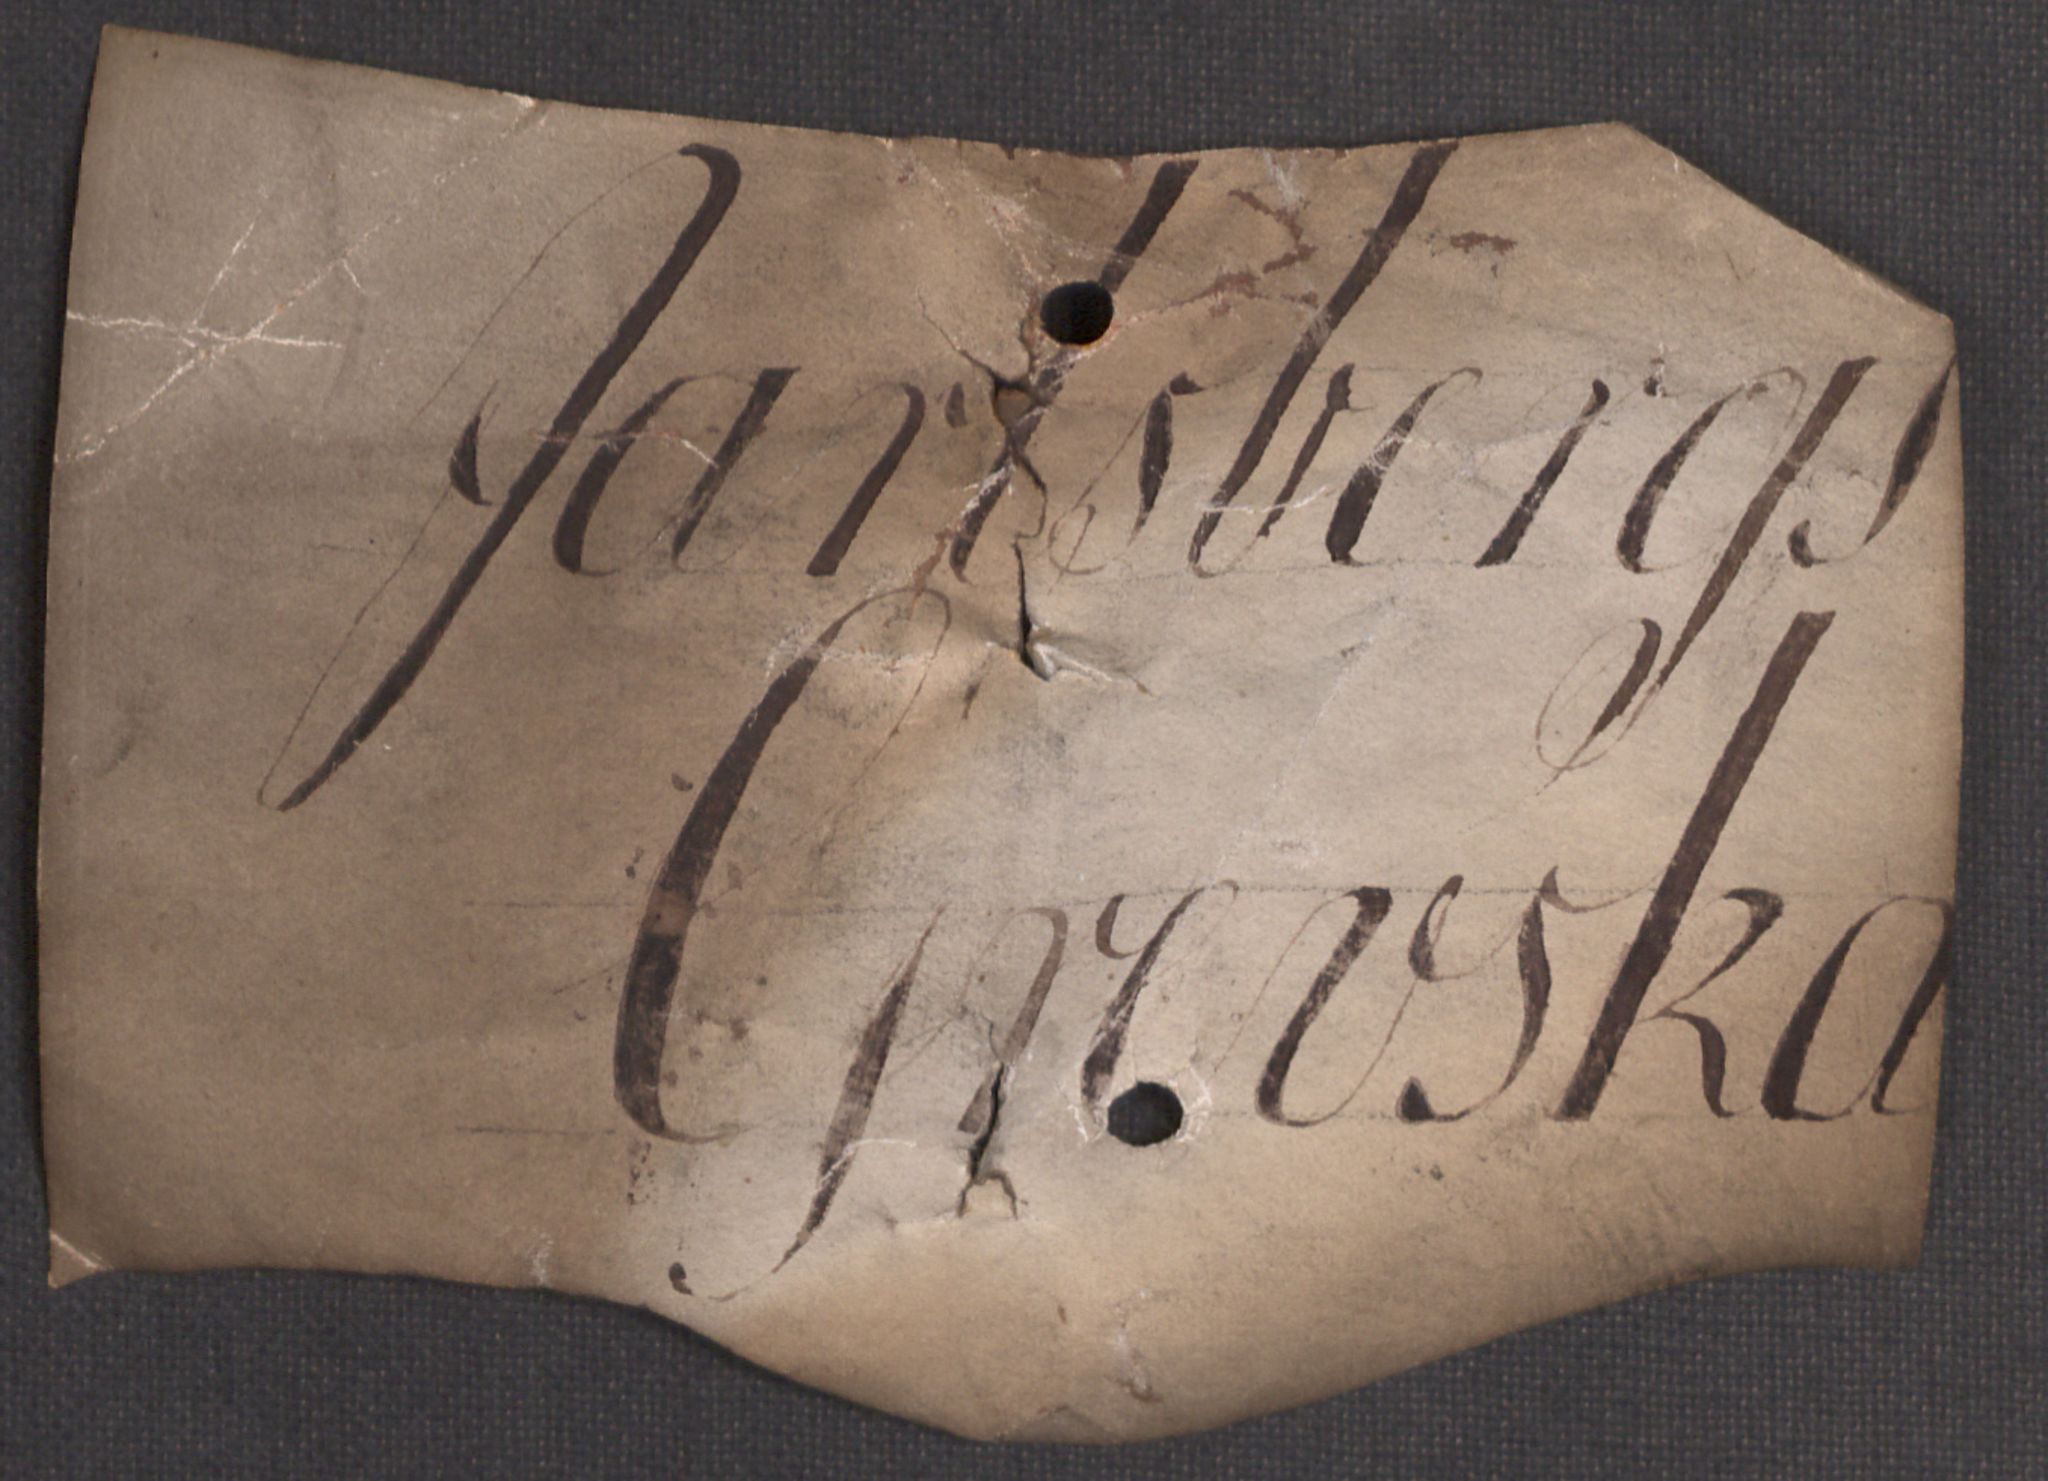 Jarlsbergs
Grevska